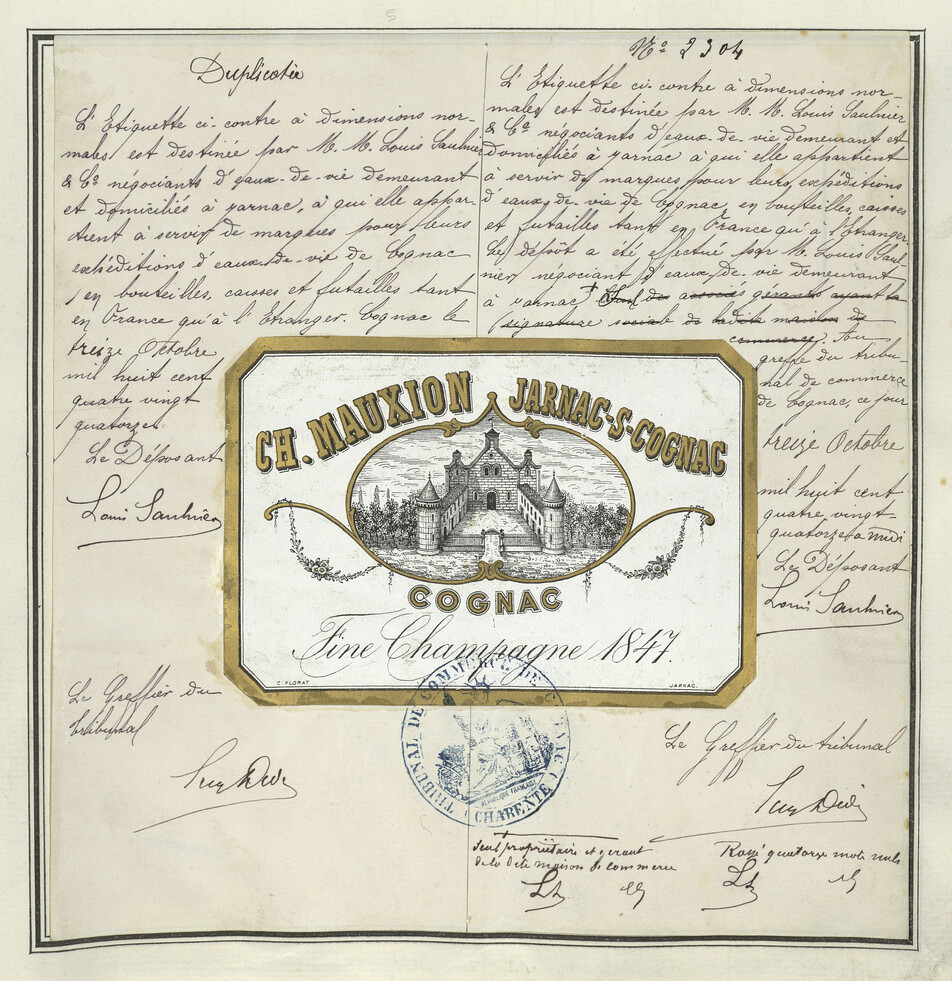 Duplicata
L'Etiquette ci-contre à dimensions nor-
males est destinée par M. M. Louis Saulnier
& Cº négociants d'eaux-de-vie demeurant
et domiciliés à Jarnac, à qui elle appar-
tient à servir de marques pour leurs
expéditions d'eaux-de-vie de Cognac
en bouteilles, caisses et futailles tant
en France qu'à l'Etranger. Cognac le
treize Octobre
mil huit cent
quatre vingt
quatorze
Le Déposant
Louis Saulnier
Le Greffier du
tribunal
Nº 2304
L'Etiquette ci-contre à dimensions nor-
males est destinée par M. M. Louis Saulnier
& Cº négociants d'eaux-de-vie demeurant et
domiciliés à Jarnac à qui elle appartient
à servir de marques pour leurs expéditions
d'eaux-de-vie de Cognac, en bouteilles, caisses
et futailles tant en France qu'à l'Etranger.
Le dépôt a été effectué par M. Louis Saul-
nier, négociant d'eaux-de-vie demeurant
à Jarnac des associés gérants ayant la
signature sociale de ladite maison de
commerce. Au
greffe du tribu-
nal de commerce
de Cognac, ce jour
treize Octobre
mil huit cent
quatre vingt-
quatorze à midi
Le Déposant
Louis Saulnier
Le Greffier du tribunal
seul propriétaire et gérant
de la dite maison de commerce
LS
Rayé quatorze mots nuls
LS
CH. MAUXION JARNAC-S-COGNAC
COGNAC
Fine Champagne 1847.
C. FLORAT JARNAC.
TRIBUNAL DE COMMERCE DE COGNAC
RÉPUBLIQUE FRANÇAISE
(CHARENTE)